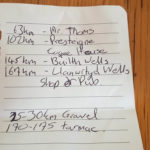 63km - Mr Thoms
102km - Presteigne
Coffee House
145km - Builth Wells
169km - Llanwrtyd Wells
Shop or Pub
25-30km Gravel
170-175 tarmac.